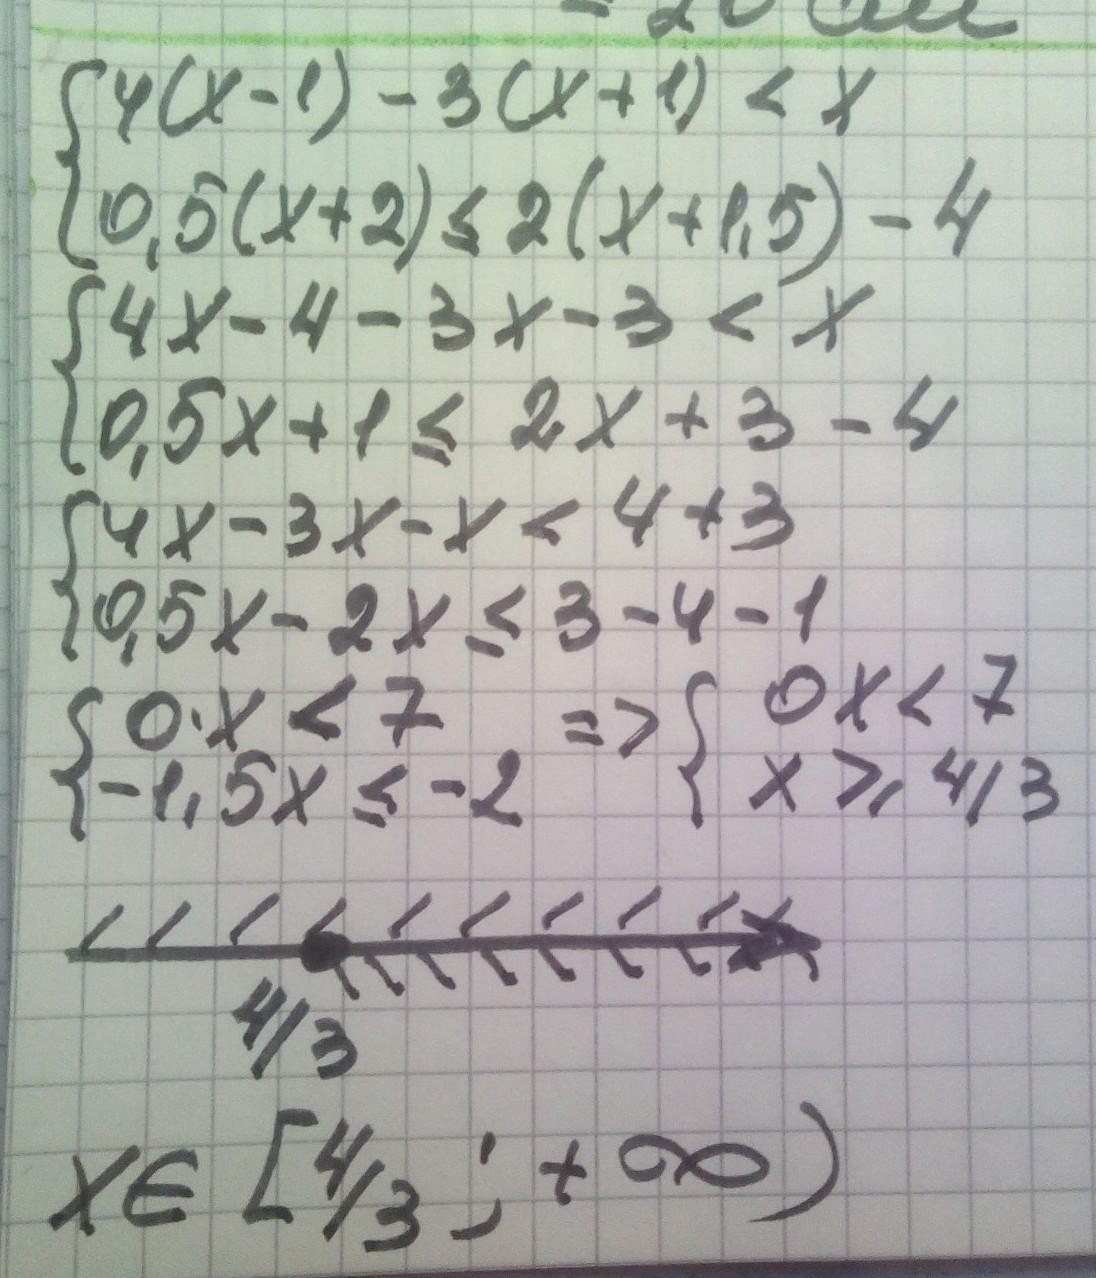 = 20
4(x-1) - 3(x+1) < x
0,5(x+2) ≤ 2(x+1,5) - 4
4x - 4 - 3x - 3 < x
0,5x + 1 ≤ 2x + 3 - 4
4x - 3x - x < 4 + 3
0,5x - 2x ≤ 3 - 4 - 1
0·x < 7 => 0x < 7
-1,5x ≤ -2 x ≥ 4/3
4/3
x ∈ [4/3 ; + ∞)